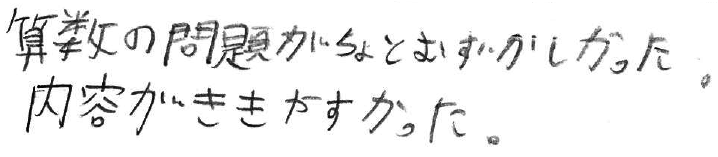 算数の問題がちょとむずかしかった。
内容がききやすかった。